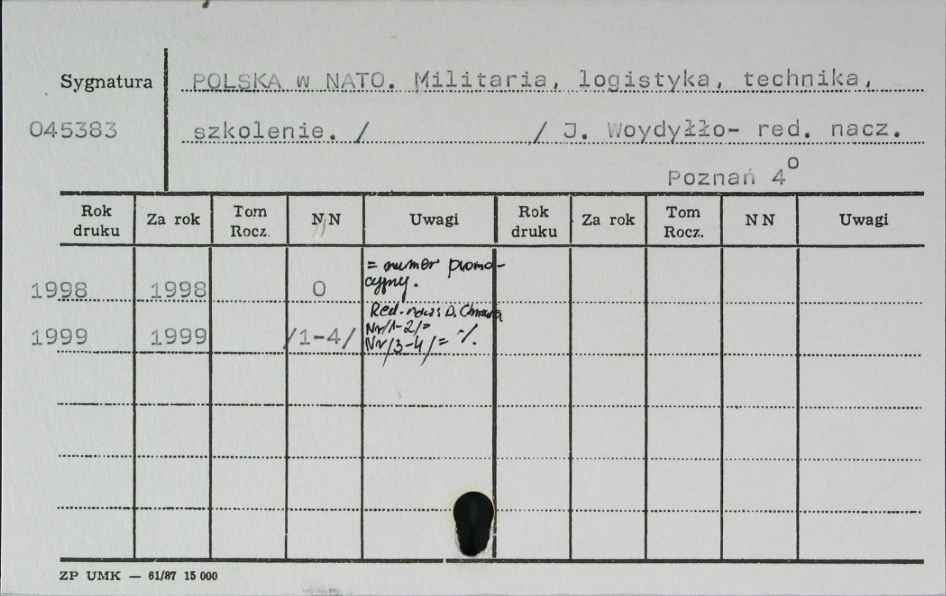 Sygnatura POLSKA w NATO. Militaria, logistyka, technika,
045383 szkolenie. / / J. Woydyłło- red. nacz.
Poznań 4⁰
Rok druku Za rok Tom Rocz. N N Uwagi Rok druku Za rok Tom Rocz. N N Uwagi
= numer promo-
cyjny.
1998 1998 0
Red. D.
1999 1999 /1-4/ Nr/1-2/=
Nr/3-4/= ·/.
ZP UMK — 61/87 15 000